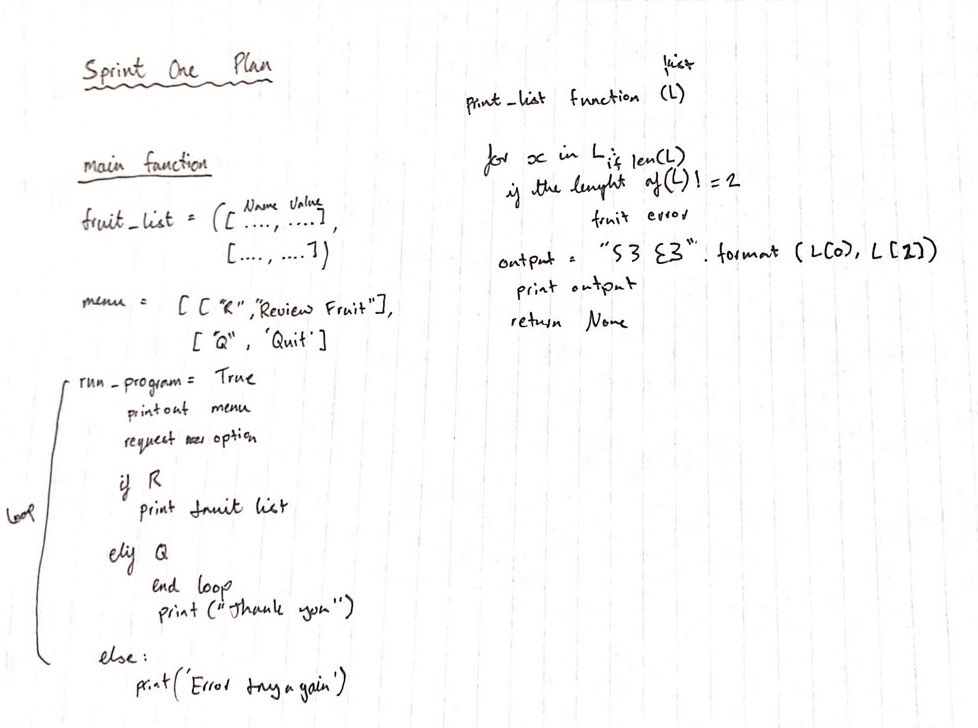 Sprint One Plan
main function
fruit_list = ([ Name Value
...., ....],
[...., ....])
menu = [ [ "R","Review Fruit"],
[ "Q" , 'Quit']
loop
run_program = True
printout menu
request option
if R
print fruit list
elif Q
end loop
print ("Thank you")
else:
print('Error try again')
list
print_list function (L)
for x in L:
if len(L)
if the lenght of (L) != 2
fruit error
output = "{} {}" . format (L[0], L[1])
print output
return None